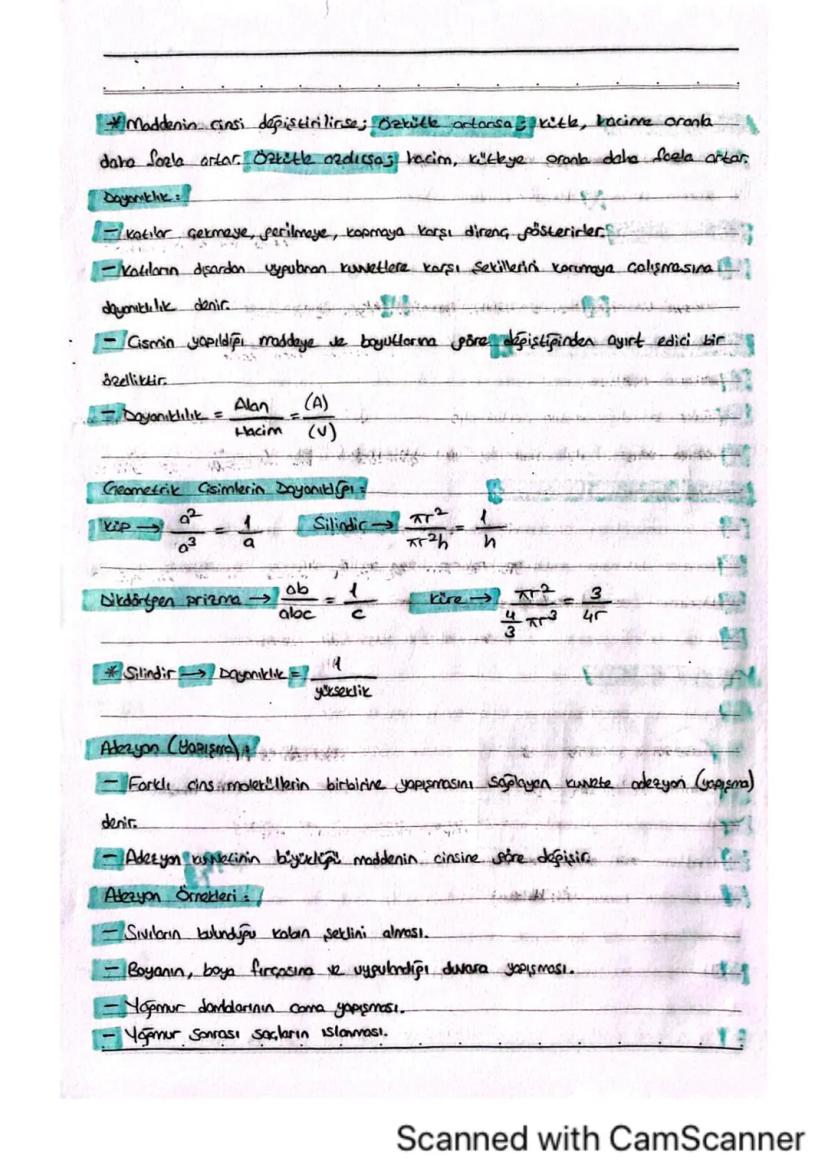 * Maddenin cinsi değiştirilirse; Özkütle artarsa; kütle, hacime oranla
daha fazla artar. Özkütle azalırsa; hacim, kütleye oranla daha fazla artar.
Dayanıklık:
- Katılar çekmeye, gerilmeye, kopmaya karşı direnç gösterirler.
- Katıların dışardan uygulanan kuvvetlere karşı şekillerini korumaya çalışmasına
dayanıklılık denir.
- Cismin yapıldığı maddeye ve boyutlarına göre değiştiğinden ayırt edici bir
özelliktir.
- Dayanıklılık = Alan/Hacim = (A)/(V)
Geometrik Cisimlerin Dayanıklığı:
Küp → a²/a³ = 1/a Silindir → πr²/πr²h = 1/h
Dikdörtgen prizma → ab/abc = 1/c Küre → πr²/(4/3 πr³) = 3/4r
* Silindir → Dayanıklık = 1/yükseklik
Adezyon (Yapışma):
- Farklı cins moleküllerin birbirine yapışmasını sağlayan kuvvete adezyon (yapışma)
denir.
- Adezyon kuvvetinin büyüklüğü maddenin cinsine göre değişir.
Adezyon Örnekleri:
- Sıvıların bulunduğu kabın şeklini alması.
- Boyanın, boya fırçasına ve uygulandığı duvara yapışması.
- Yağmur damlalarının cama yapışması.
- Yağmur sonrası saçların ıslanması.
Scanned with CamScanner